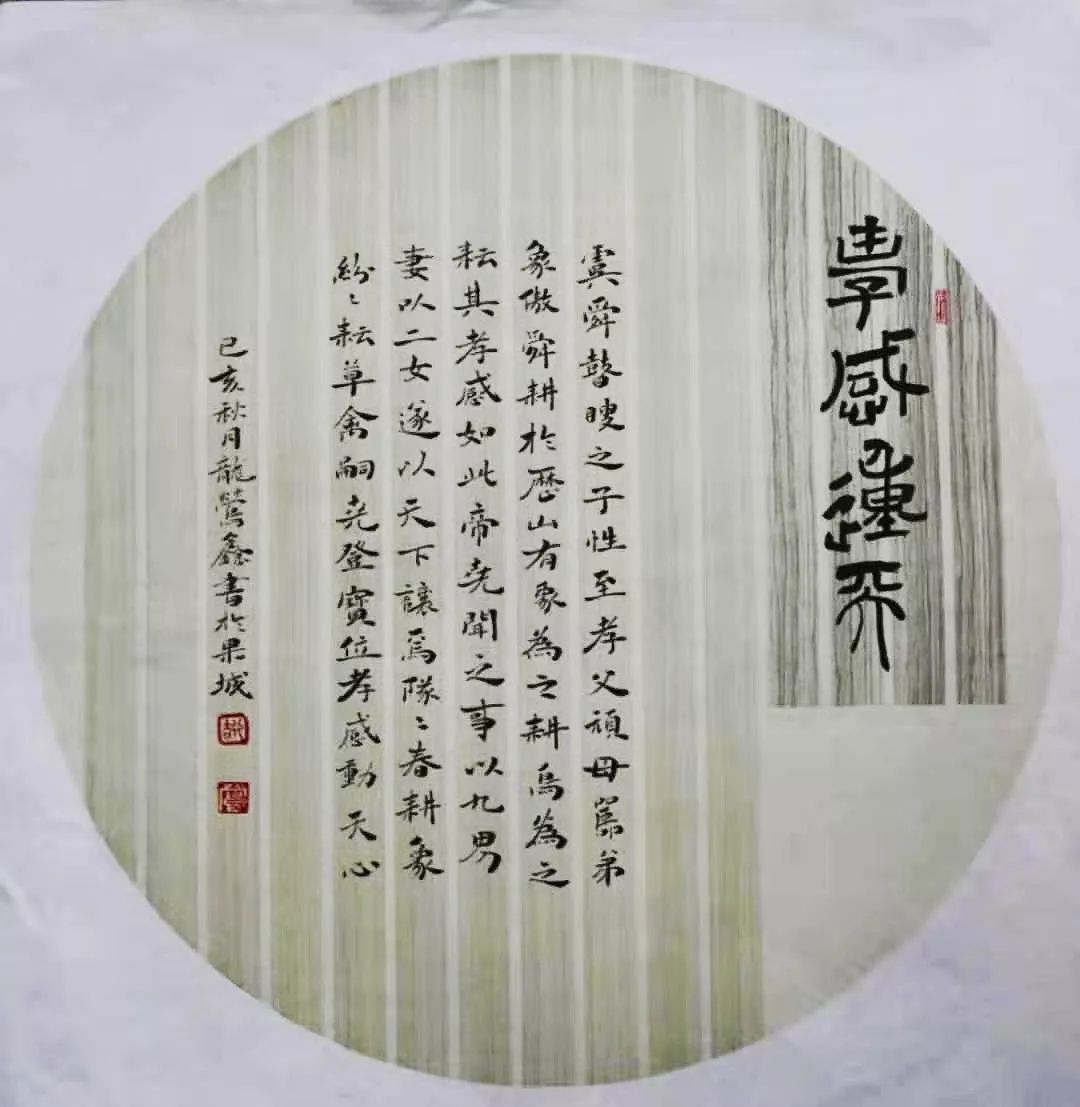 孝感動天
虞舜瞽瞍之子性至孝父頑母嚚弟
象傲舜耕於歷山有象為之耕鳥為之
耘其孝感如此帝堯聞之事以九男
妻以二女遂以天下讓焉隊〻春耕象
紛〻耘草禽嗣堯登寶位孝感動天心
己亥秋月龍鶯鑫書於果城